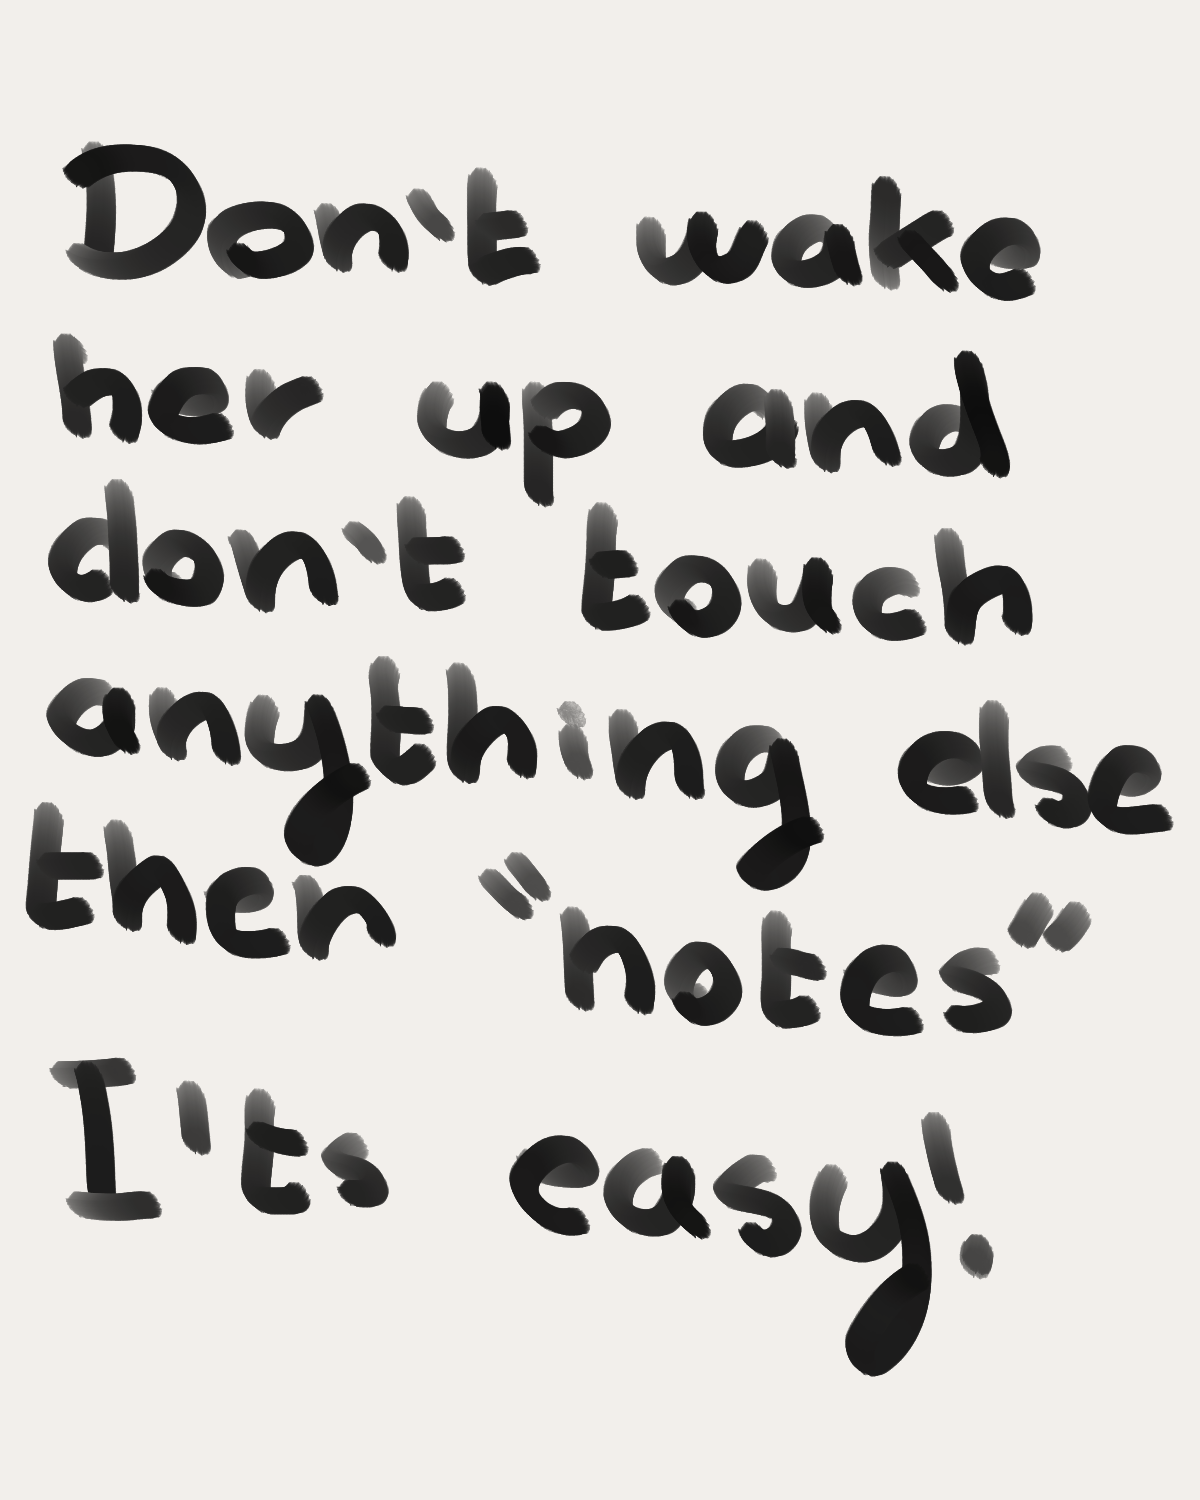 Don't wake
her up and
don't touch
anything else
then "notes"
I'ts easy!